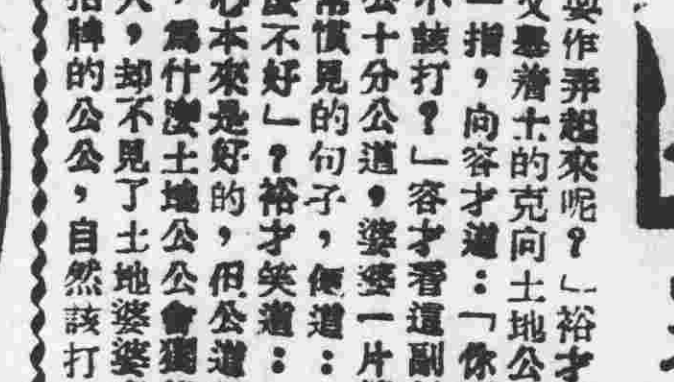 作弄起來呢？」裕才
舉着士的克向土地公
一指，向容才道：「你
不該打？」容才看這副
公十分公道，婆婆一片
常慣見的句子，便道：
麼不好」？裕才笑道：
心本來是好的，但公道
，爲什麼土地公公會獨
人，却不見了土地婆婆
招牌的公公，自然該打